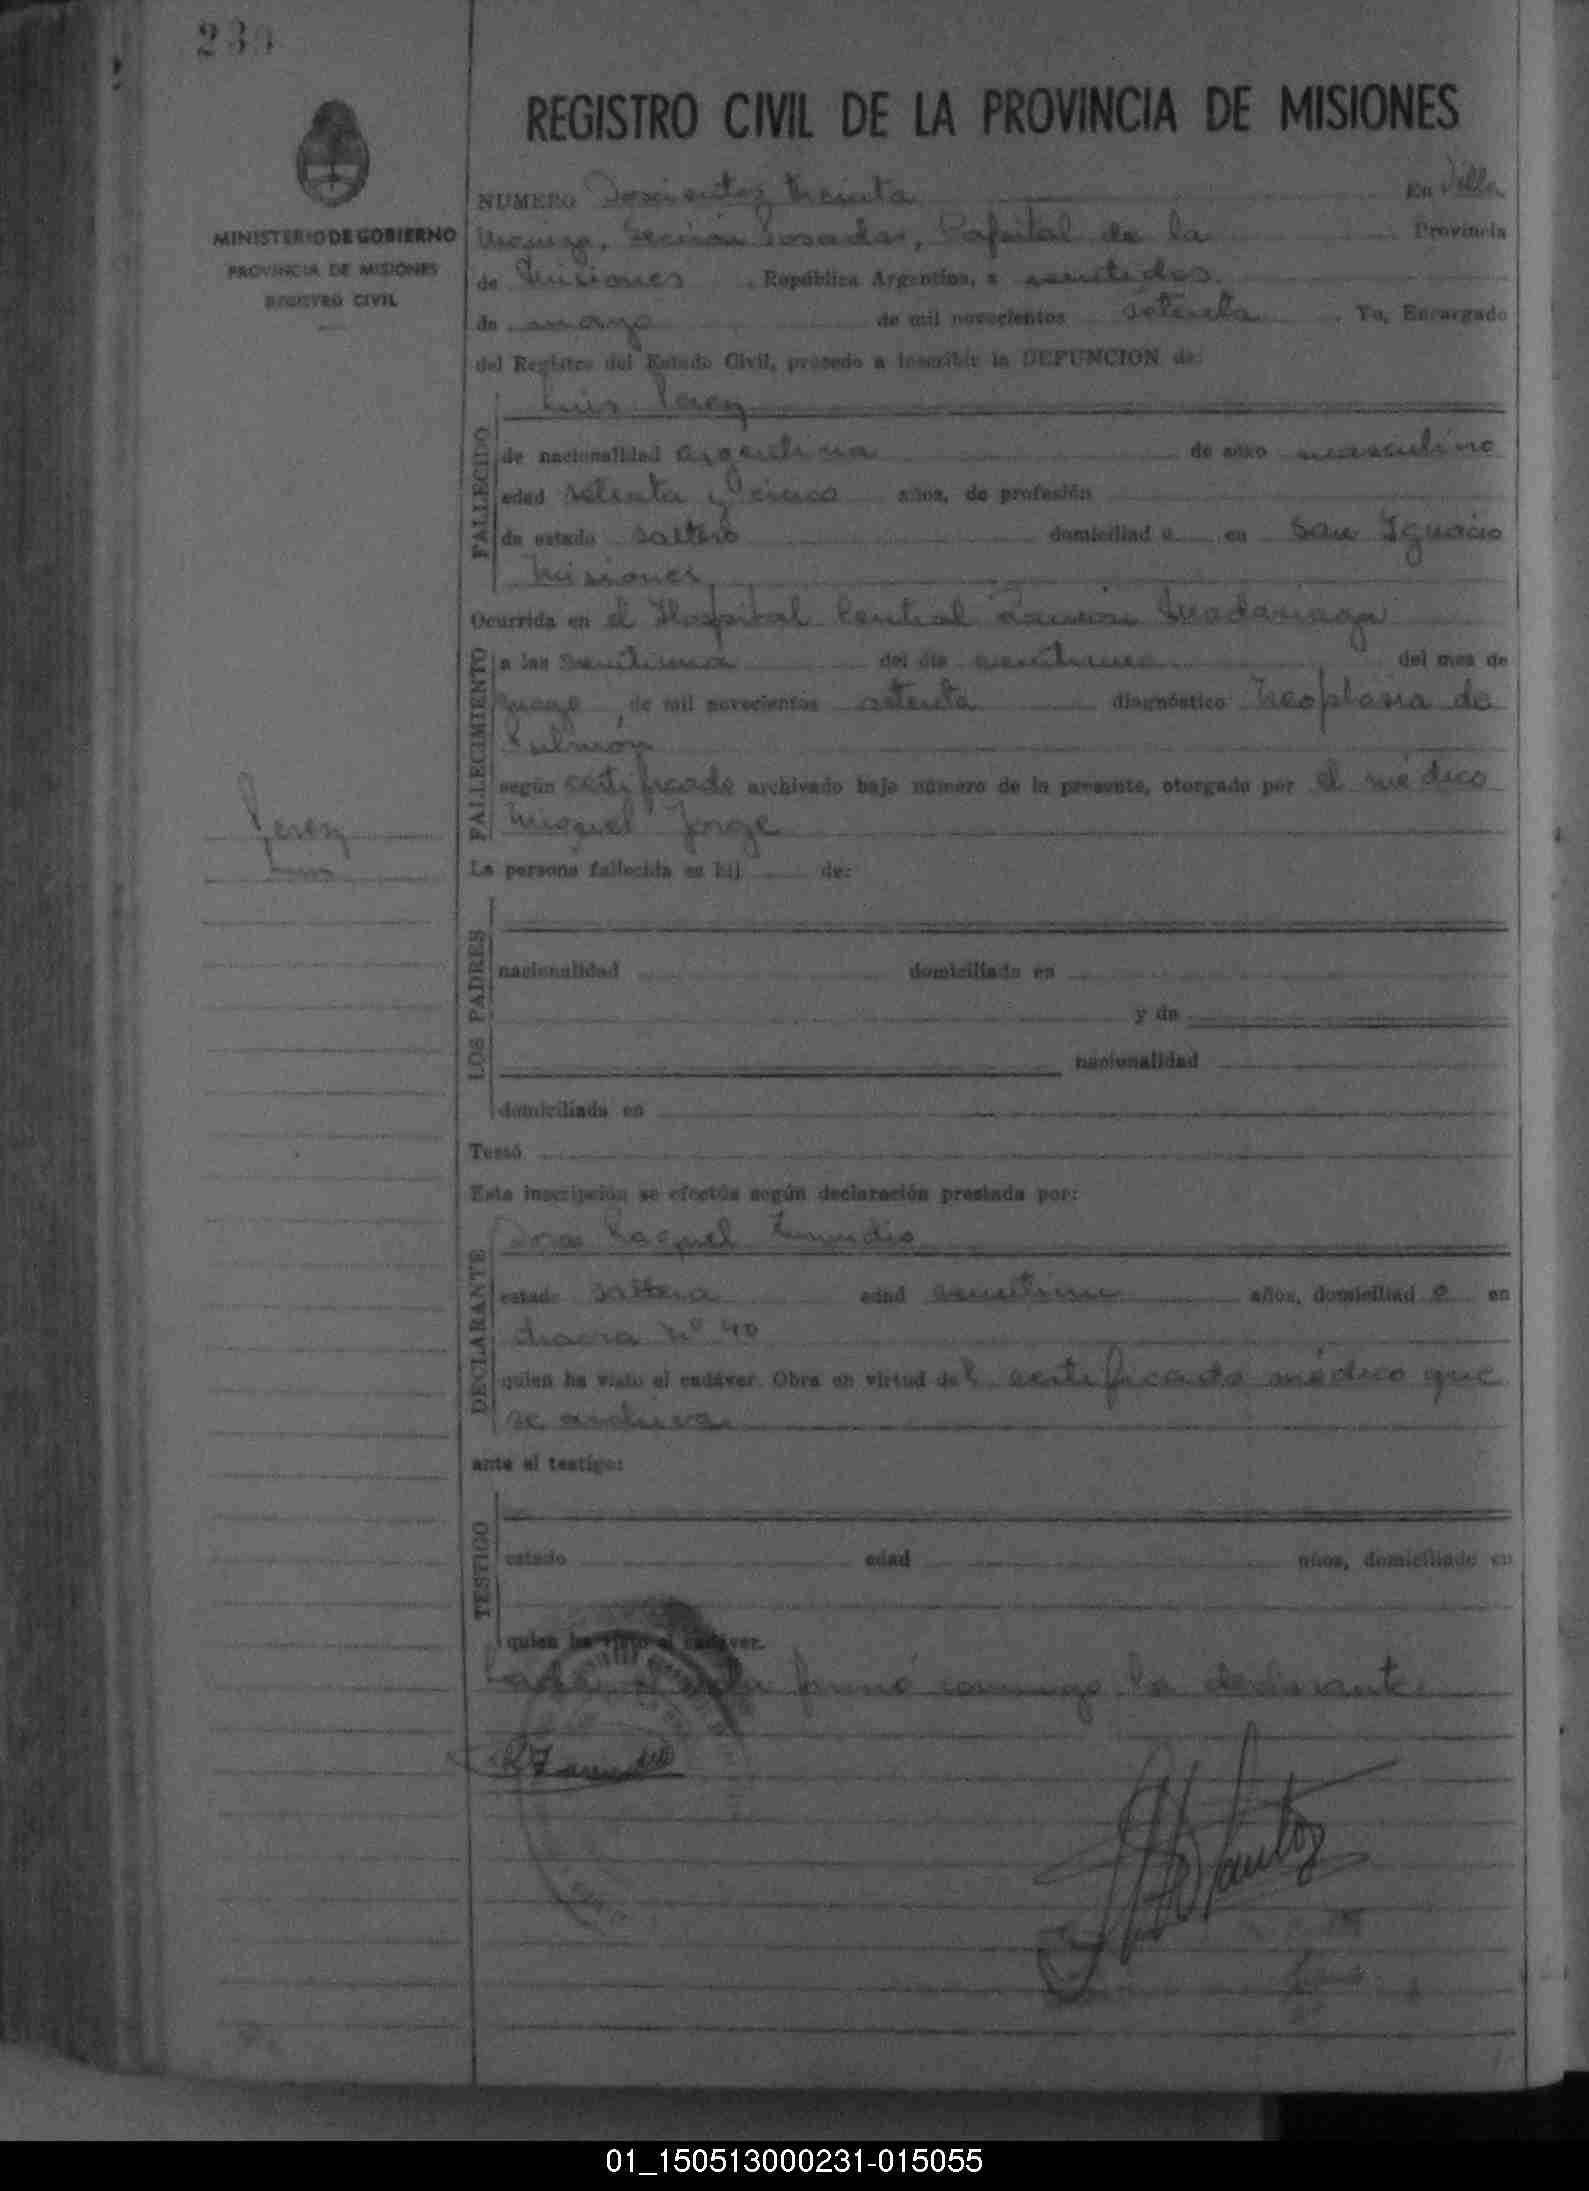 230
REGISTRO CIVIL DE LA PROVINCIA DE MISIONES
MINISTERIO DE GOBIERNO
PROVINCIA DE MISIONES
REGISTRO CIVIL
NUMERO Doscientos treinta En Villa
Urquiza, Sección Posadas, Capital de la Provincia
de Misiones , República Argentina, a veintidos
de mayo de mil novecientos setenta . Yo, Encargado
del Registro del Estado Civil, procedo a inscribir la DEFUNCION de:
Luis Perez
FALLECIDO
de nacionalidad argentina de sexo masculino
edad setenta y cinco años, de profesión
de estado soltero domiciliad o en San Ignacio
Misiones
Ocurrida en el Hospital Central Ramón Madariaga
FALLECIMIENTO
a las del día del mes de
mayo de mil novecientos setenta diagnóstico Neoplasia de
Pulmón
según certificado archivado bajo número de la presente, otorgado por el médico
Miguel Jorge
Perez
Luis
La persona fallecida es hij de:
LOS PADRES
nacionalidad domiciliado en
y de
nacionalidad
domiciliada en
Testó
Esta inscripción se efectúa según declaración prestada por:
DECLARANTE
Raquel Zamudio
estado soltera edad años, domiciliad o en
chacra Nº 40
quien ha visto el cadáver. Obra en virtud del certificado médico que
se archiva
ante el testigo:
TESTIGO
estado edad años, domiciliado en
quien ha visto el cadáver.
Leída el acta firmó conmigo la declarante
R Zamudio
01_150513000231-015055